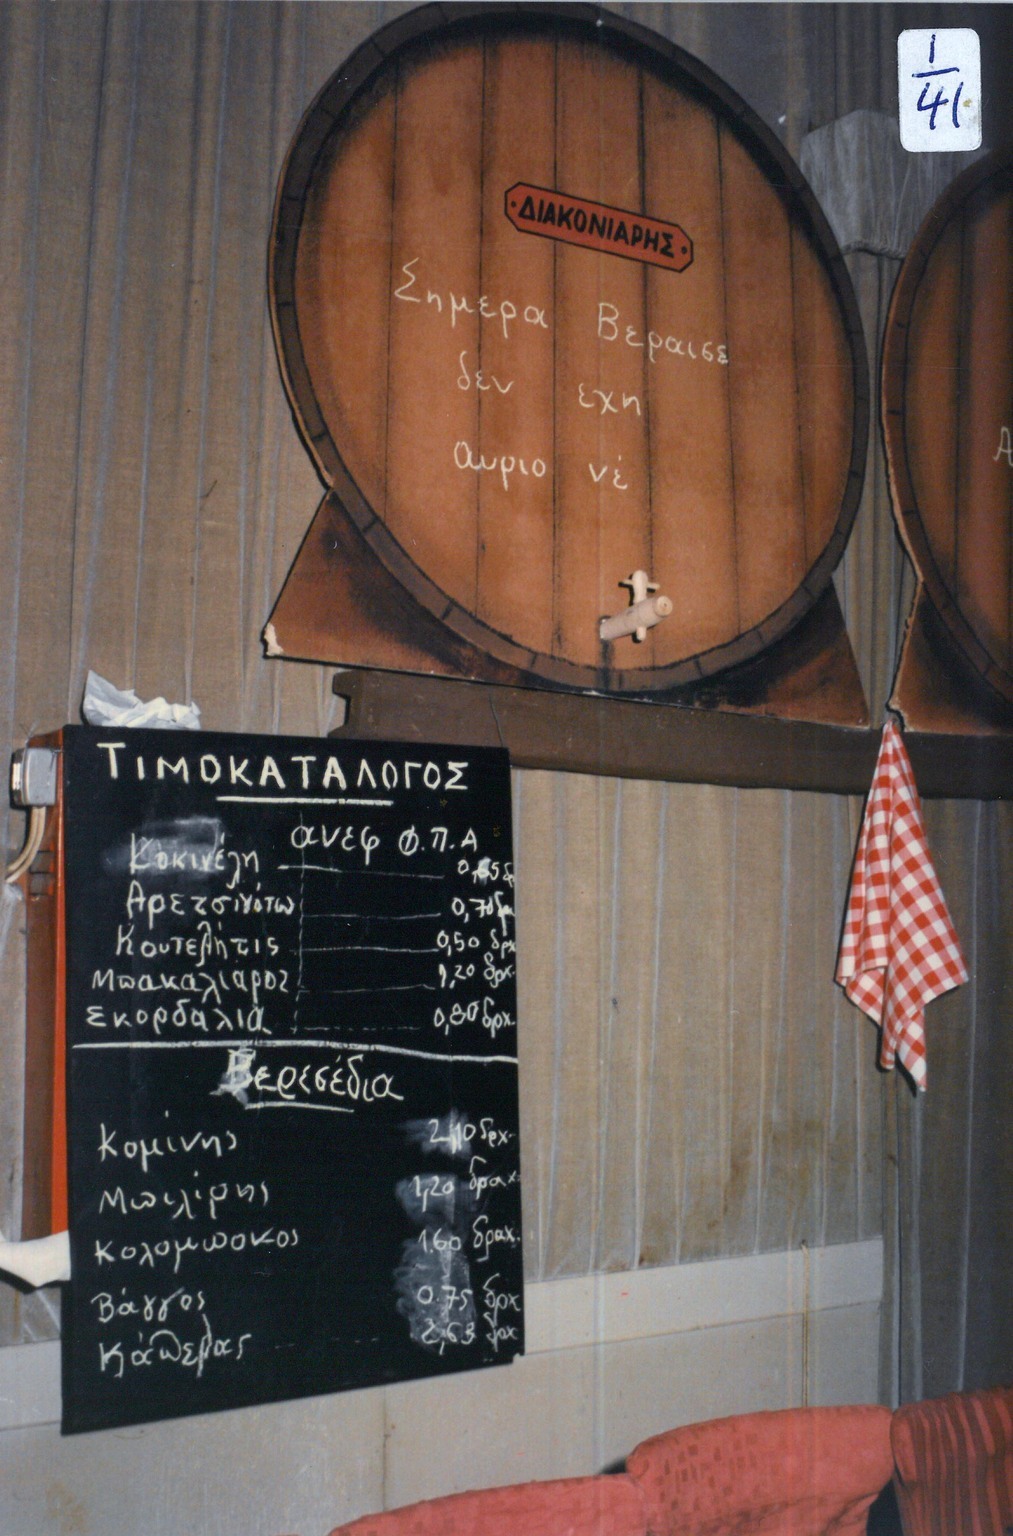 1
41
ΔΙΑΚΟΝΙΑΡΗΣ
Σημερα Βεραισε
δεν εχη
αυριο νέ
Α
ΤΙΜΟΚΑΤΑΛΟΓΟΣ
ανεφ Φ.Π.Α
Κοκινέλη 0,65 δρ
Αρετσινότω 0,70 δρχ
Κουτελήτις 0,50 δρχ
Μπακαλιαρος 1,20 δρχ.
Σκορδαλιά 0,80 δρχ.
Βερεσέδια
Κομίνης 2,10 δρχ.
Μπιλίρης 1,20 δραχ.
Κολομποκος 1.60 δραχ.
Βάγγος 0.75 δρχ
Κάπελας 2,63 δρχ